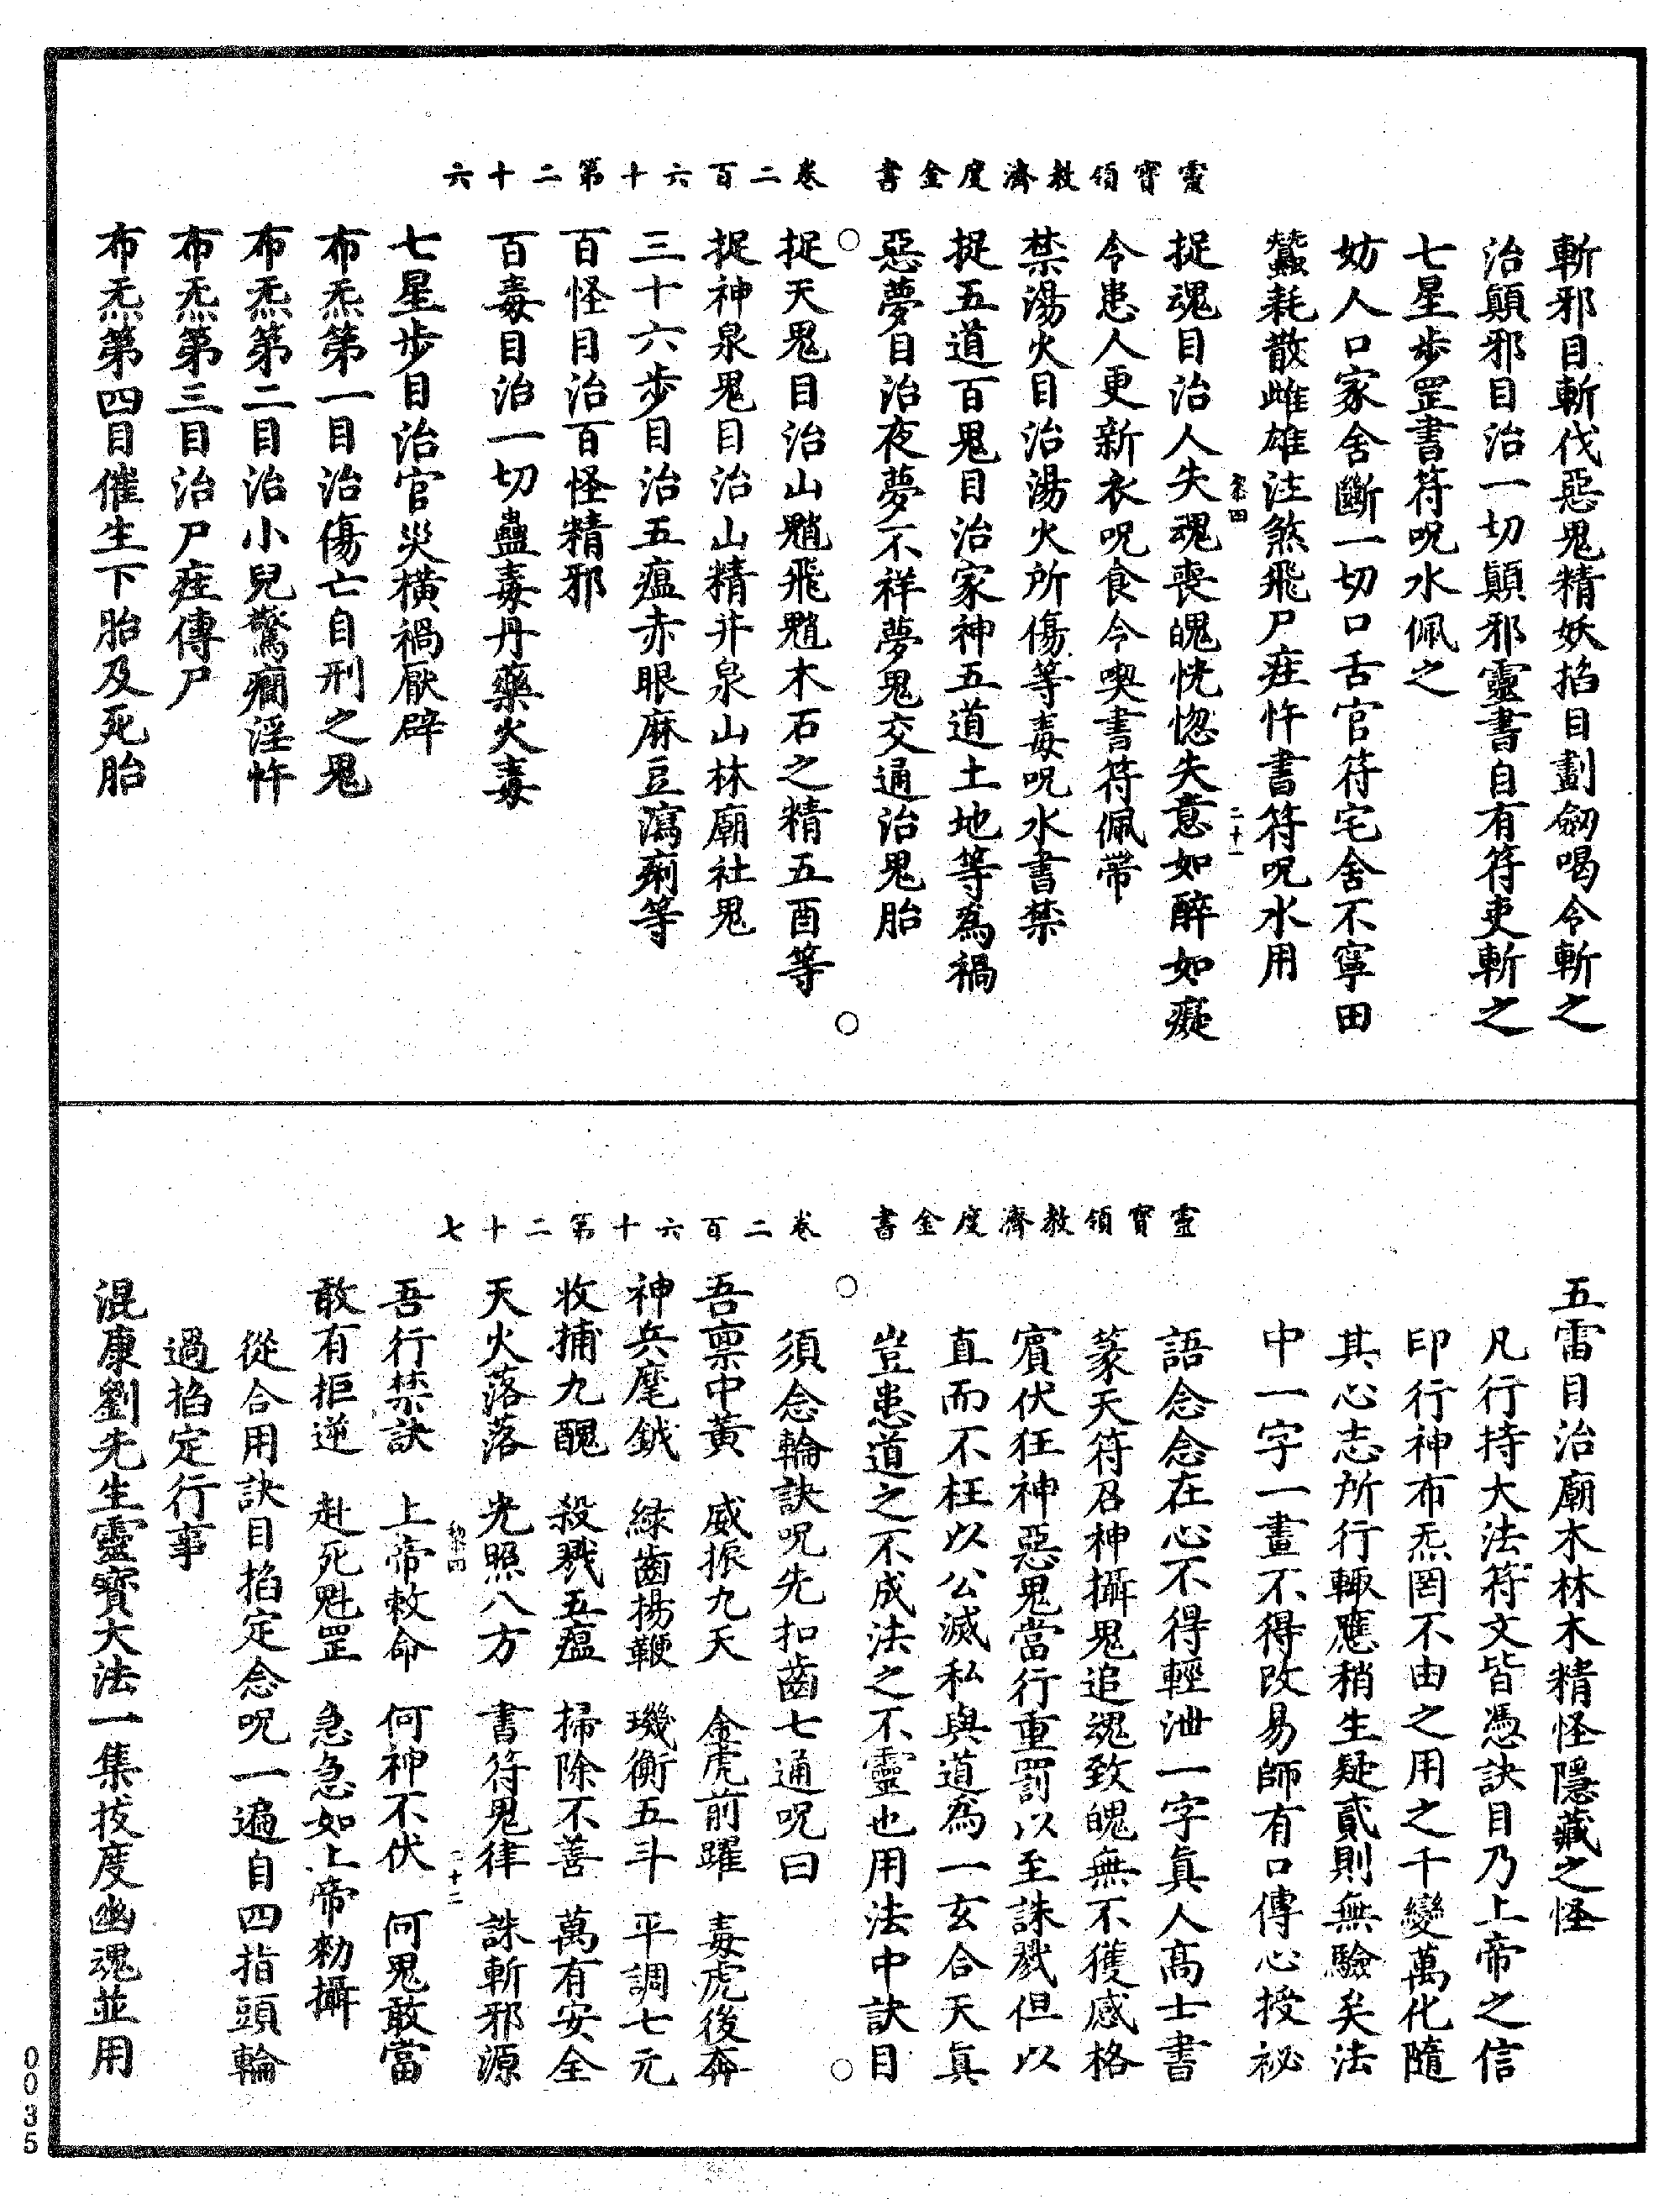 靈寶領教濟度金書　卷二百六十第二十六
斬邪目斬伐惡鬼精妖掐目劃劒喝令斬之
治顛邪目治一切顛邪靈書自有符吏斬之
七星步罡書符呪水佩之
妨人口家舍斷一切口舌官符宅舍不寧田
蠶耗散雌雄注煞飛尸疰忤書符呪水用
捉魂目治人失魂喪魄恍惚失意如醉如癡
令患人更新衣呪食令喫書符佩帶
禁湯火目治湯火所傷等毒呪水書禁
捉五道百鬼目治家神五道土地等爲禍
惡夢目治夜夢不祥夢鬼交通治鬼胎
捉天鬼目治山魈飛魈木石之精五酉等
捉神泉鬼目治山精井泉山林廟社鬼
三十六步目治五瘟赤眼麻豆瀉痢等
百怪目治百怪精邪
百毒目治一切蠱毒丹藥火毒
七星步目治官災橫禍厭辟
布炁第一目治傷亡自刑之鬼
布炁第二目治小兒驚癇淫忤
布炁第三目治尸疰傳尸
布炁第四目催生下胎及死胎
二十一
靈寶領教濟度金書　卷二百六十第二十七
五雷目治廟木林木精怪隱藏之怪
凡行持大法符文皆憑訣目乃上帝之信
印行神布炁罔不由之用之千變萬化隨
其心志所行輙應稍生疑貳則無驗矣法
中一字一畫不得改易師有口傳心授祕
語念念在心不得輕泄一字真人高士書
篆天符召神攝鬼追魂致魄無不獲感格
賓伏狂神惡鬼當行重罰以至誅戮但以
直而不枉以公滅私與道為一玄合天真
豈患道之不成法之不靈也用法中訣目
須念輪訣呪先扣齒七通呪曰
吾禀中黃　威振九天　金虎前躍　毒虎後奔
神兵麾鉞　綠齒揚鞭　璣衡五斗　平調七元
收捕九醜　殺戮五瘟　掃除不善　萬有安全
天火落落　光照八方　書符鬼律　誅斬邪源
吾行禁訣　上帝敕命　何神不伏　何鬼敢當
敢有拒逆　赴死魁罡　急急如上帝勑攝
從合用訣目掐定念呪一遍自四指頭輪
過掐定行事
混康劉先生靈寶大法一集拔度幽魂並用
二十二
0035